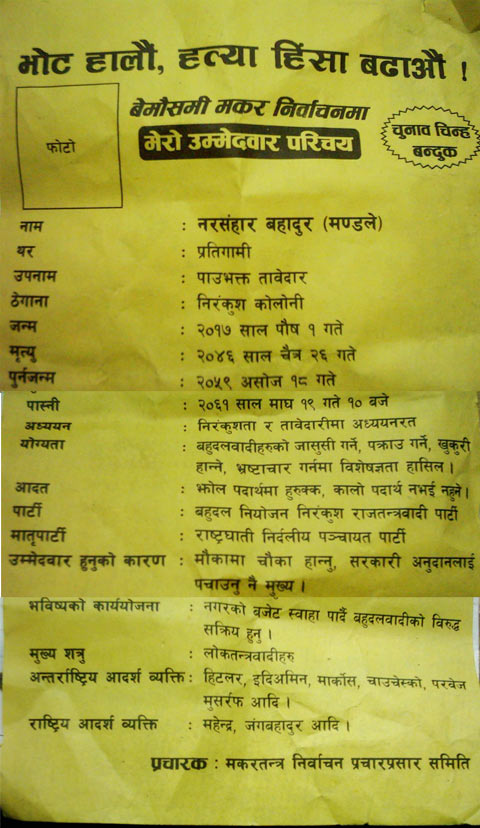 भोट हालौं, हत्या हिंसा बढाऔं !
बेमौसमी मकर निर्वाचनमा
मेरो उम्मेदवार परिचय
चुनाव चिन्ह
बन्दुक
फोटो
नाम : नरसंहार बहादुर (मण्डले)
थर : प्रतिगामी
उपनाम : पाउभक्त तावेदार
ठेगाना : निरंकुश कोलोनी
जन्म : २०१७ साल पौष १ गते
मृत्यु : २०४६ साल चैत्र २६ गते
पुर्नजन्म : २०५९ असोज १८ गते
पास्नी : २०६१ साल माघ १९ गते १० बजे
अध्ययन : निरंकुशता र तावेदारीमा अध्ययनरत
योग्यता : बहुदलवादीहरुको जासुसी गर्ने, पक्राउ गर्ने, खुकुरी
हान्ने, भ्रष्टाचार गर्नमा विशेषज्ञता हासिल ।
आदत : झोल पदार्थमा हुरुक्क, कालो पदार्थ नभई नहुने ।
पार्टी : बहुदल नियोजन निरंकुश राजतन्त्रवादी पार्टी
मातृपार्टी : राष्ट्रघाती निर्दलीय पञ्चायत पार्टी
उम्मेदवार हुनुको कारण : मौकामा चौका हान्नु, सरकारी अनुदानलाई
पचाउनु नै मुख्य ।
भविष्यको कार्ययोजना : नगरको बजेट स्वाहा पार्दै बहुदलवादीको विरुद्ध
सक्रिय हुनु ।
मुख्य शत्रु : लोकतन्त्रवादीहरु
अन्तर्राष्ट्रिय आदर्श व्यक्ति : हिटलर, इदिअमिन, मार्कोस, चाउचेस्को, परवेज
मुसर्रफ आदि ।
राष्ट्रिय आदर्श व्यक्ति : महेन्द्र, जंगबहादुर आदि ।
प्रचारक : मकरतन्त्र निर्वाचन प्रचारप्रसार समिति